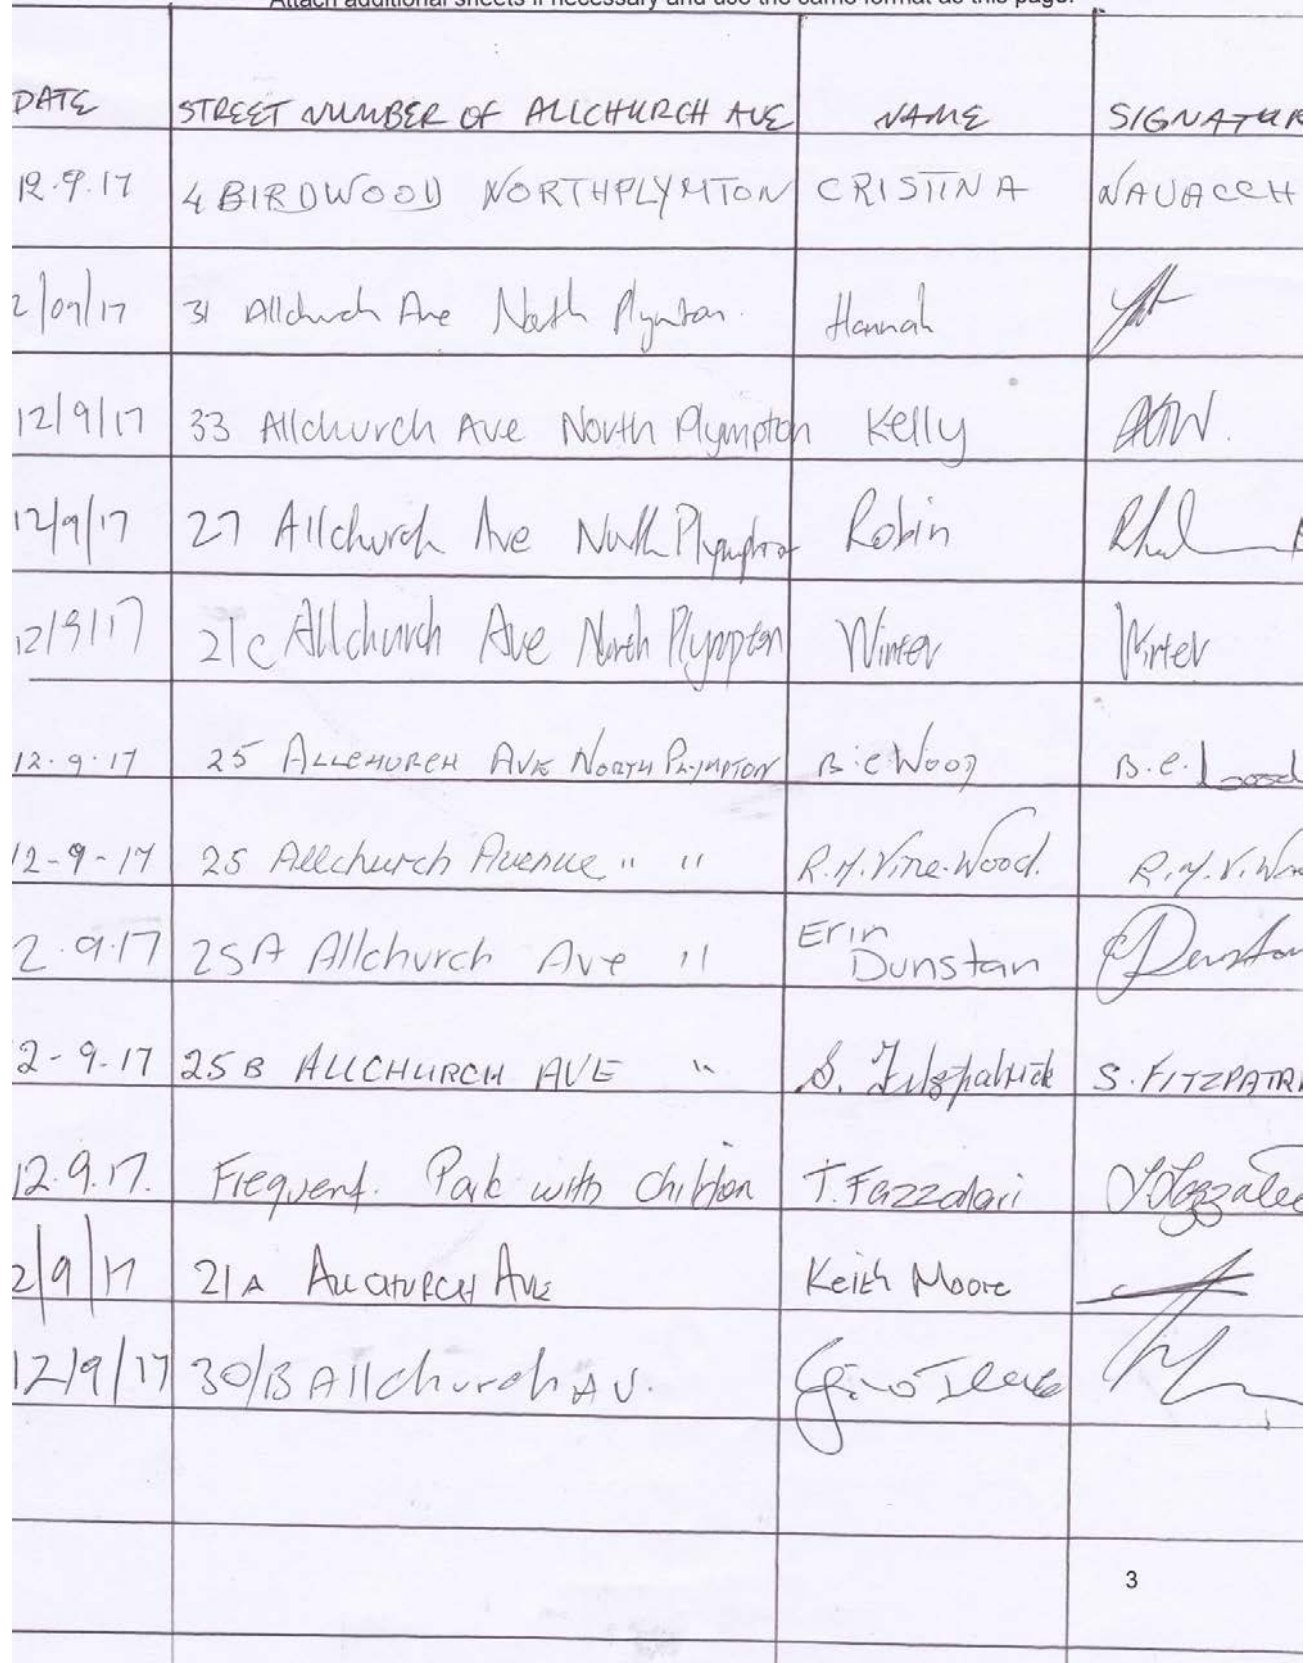 Attach additional sheets if necessary and use the same format as this page.
DATE STREET NUMBER OF ALLCHURCH AVE NAME SIGNATUR
12.9.17 4 BIRDWOOD NORTHPLYMTON CRISTINA NAUACCH
2/09/17 31 Allchurch Ave North Plympton. Hannah
12/9/17 33 Allchurch Ave North Plympton Kelly
12/9/17 27 Allchurch Ave North Plympton Robin
12/9/17 21c Allchurch Ave North Plympton Winter Winter
12.9.17 25 ALLCHURCH AVE NORTH PLYMPTON B.C Wood B.C.
12-9-17 25 Allchurch Avenue " " R.M. Vine-Wood. R.M.V.
2.9.17 25A Allchurch Ave " Erin Dunstan Dunstan
2-9-17 25B ALLCHURCH AVE " S. Fitzpatrick S. FITZPATRI
12.9.17. Frequent Park with children T. Fazzalari
2/9/17 21A ALLCHURCH AVE Keith Moore
12/9/17 30/B Allchurch AV. Gino
3